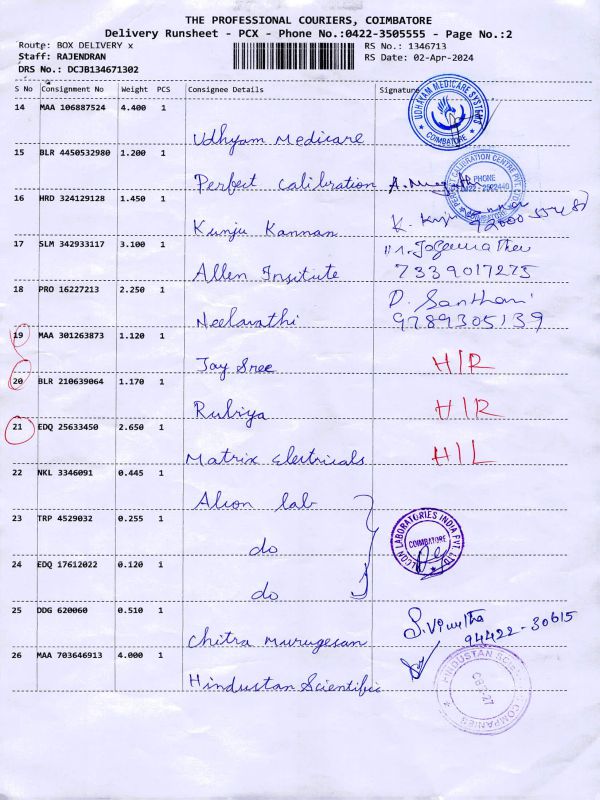 THE PROFESSIONAL COURIERS, COIMBATORE
Delivery Runsheet - PCX - Phone No.:0422-3505555 - Page No.:2
Route: BOX DELIVERY x
RS No.: 1346713
Staff: RAJENDRAN
RS Date: 02-Apr-2024
DRS No.: DCJB134671302
S No Consignment No Weight PCS Consignee Details Signature
14 MAA 106887524 4.400 1
Udhyam Medicare
UDHAYAM MEDICARE SYSTEMS
COIMBATORE
15 BLR 4450532980 1.200 1
Perfect Calibration
PERFECT CALIBRATION CENTRE PVT. LTD.
PHONE
16 HRD 324129128 1.450 1
Kunju Kannan K.
17 SLM 342933117 3.100 1
Allen Institute 7339017275
18 PRO 16227213 2.250 1
D. Santhani
Neelavathi 9789305139
19 MAA 301263873 1.120 1
Jay Sree H/R
20 BLR 210639064 1.170 1
Rubiya H/R
21 EDQ 25633450 2.650 1
Matrix Electricals H/L
22 NKL 3346091 0.445 1
Alcon lab
23 TRP 4529032 0.255 1
do
ALCON LABORATORIES INDIA PVT. LTD.
COIMBATORE
24 EDQ 17612022 0.120 1
do
25 DDG 620060 0.510 1
Chitra Murugesan
S. Vinitha
94422-30615
26 MAA 703646913 4.000 1
Hindustan Scientific
HINDUSTAN SCIENTIFIC COMPANIES